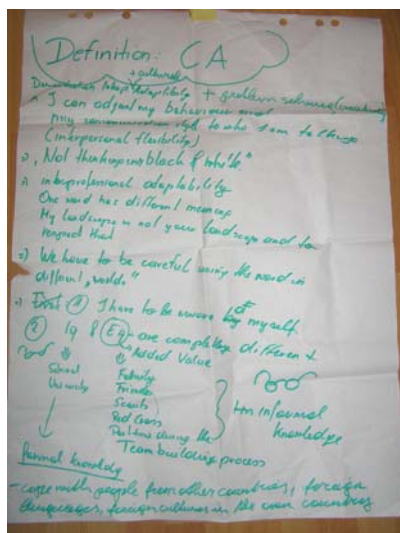 Definition: CA
+ cultural
adaptability + problem
" I can adjust my behaviour and
my communication style to who I am talking
(interpersonal flexibility)
Not thinking in black & white"
interprofessional adaptability
One word has different meaning
My landscape is not your landscape and to
respect that
We have to be careful using the word in
different "worlds"
① I have to be aware of myself
② IQ & EQ are completely different
"Added Value
School
University
Family
Friends
Scouts
Red Cross
Positions during the
Team building process
informal
knowledge
Formal knowledge
- cope with people from other countries, foreign
languages, foreign cultures in the own country